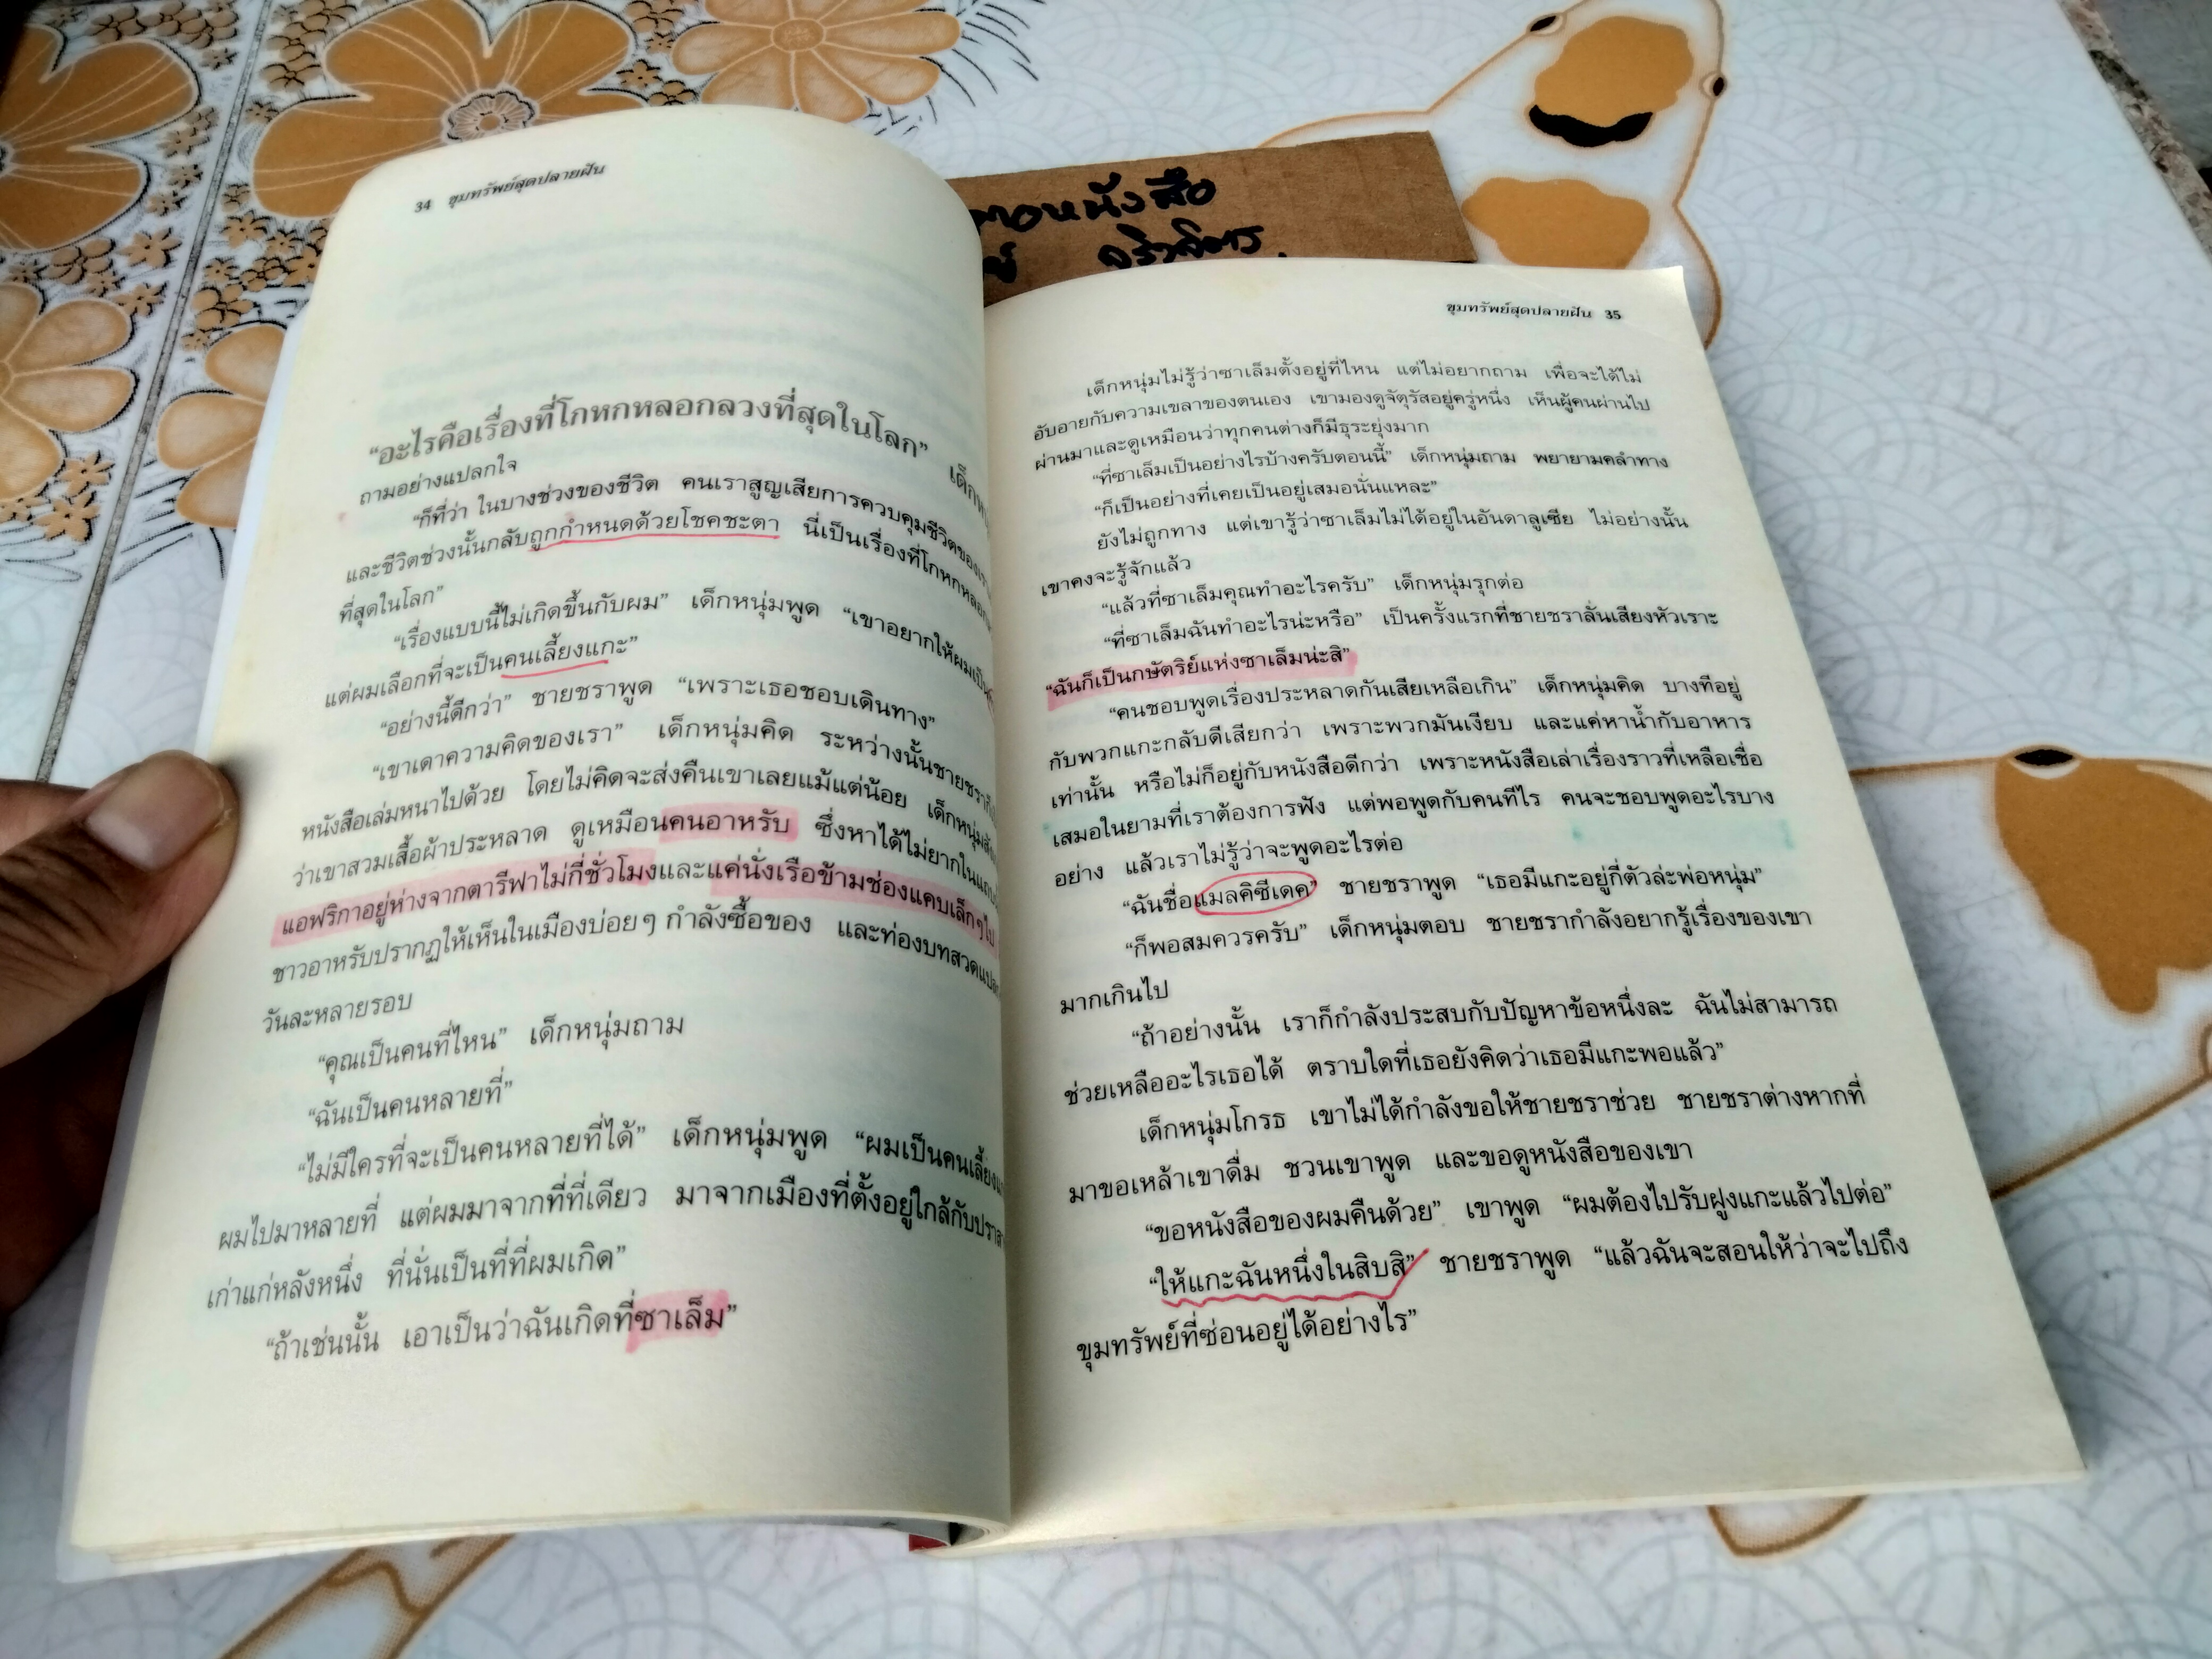 34 ขุมทรัพย์สุดปลายฝัน
“อะไรคือเรื่องที่โกหกหลอกลวงที่สุดในโลก”
ถามอย่างแปลกใจ
“ก็ที่ว่า ในบางช่วงของชีวิต คนเราสูญเสียการควบคุมชีวิตของเรา
และชีวิตช่วงนั้นกลับถูกกำหนดด้วยโชคชะตา นี่เป็นเรื่องที่โกหกหลอก
ที่สุดในโลก”
“เรื่องแบบนี้ไม่เกิดขึ้นกับผม” เด็กหนุ่มพูด “เขาอยากให้ผมเป็น
แต่ผมเลือกที่จะเป็นคนเลี้ยงแกะ”
“อย่างนี้ดีกว่า” ชายชราพูด “เพราะเธอชอบเดินทาง”
“เขาเดาความคิดของเรา” เด็กหนุ่มคิด ระหว่างนั้นชายชรา
หนังสือเล่มหนาไปด้วย โดยไม่คิดจะส่งคืนเขาเลยแม้แต่น้อย เด็กหนุ่ม
ว่าเขาสวมเสื้อผ้าประหลาด ดูเหมือนคนอาหรับ ซึ่งหาได้ไม่ยากใน
แอฟริกาอยู่ห่างจากตารีฟาไม่กี่ชั่วโมงและแค่นั่งเรือข้ามช่องแคบเล็กๆไป
ชาวอาหรับปรากฏให้เห็นในเมืองบ่อยๆ กำลังซื้อของ และท่องบทสวด
วันละหลายรอบ
“คุณเป็นคนที่ไหน” เด็กหนุ่มถาม
“ฉันเป็นคนหลายที่”
“ไม่มีใครที่จะเป็นคนหลายที่ได้” เด็กหนุ่มพูด “ผมเป็นคนเลี้ยง
ผมไปมาหลายที่ แต่ผมมาจากที่ที่เดียว มาจากเมืองที่ตั้งอยู่ใกล้กับ
เก่าแก่หลังหนึ่ง ที่นั่นเป็นที่ที่ผมเกิด”
“ถ้าเช่นนั้น เอาเป็นว่าฉันเกิดที่ซาเล็ม”
หนังสือ
ขุมทรัพย์สุดปลายฝัน 35
เด็กหนุ่มไม่รู้ว่าซาเล็มตั้งอยู่ที่ไหน แต่ไม่อยากถาม เพื่อจะได้ไม่
อับอายกับความเขลาของตนเอง เขามองดูจัตุรัสอยู่ครู่หนึ่ง เห็นผู้คนผ่านไป
ผ่านมาและดูเหมือนว่าทุกคนต่างก็มีธุระยุ่งมาก
“ที่ซาเล็มเป็นอย่างไรบ้างครับตอนนี้” เด็กหนุ่มถาม พยายามคลำทาง
“ก็เป็นอย่างที่เคยเป็นอยู่เสมอนั่นแหละ”
ยังไม่ถูกทาง แต่เขารู้ว่าซาเล็มไม่ได้อยู่ในอันดาลูเซีย ไม่อย่างนั้น
เขาคงจะรู้จักแล้ว
“แล้วที่ซาเล็มคุณทำอะไรครับ” เด็กหนุ่มรุกต่อ
“ที่ซาเล็มฉันทำอะไรน่ะหรือ” เป็นครั้งแรกที่ชายชราลั่นเสียงหัวเราะ
“ฉันก็เป็นกษัตริย์แห่งซาเล็มน่ะสิ”
“คนชอบพูดเรื่องประหลาดกันเสียเหลือเกิน” เด็กหนุ่มคิด บางทีอยู่
กับพวกแกะกลับดีเสียกว่า เพราะพวกมันเงียบ และแค่หาน้ำกับอาหาร
เท่านั้น หรือไม่ก็อยู่กับหนังสือดีกว่า เพราะหนังสือเล่าเรื่องราวที่เหลือเชื่อ
เสมอในยามที่เราต้องการฟัง แต่พอพูดกับคนทีไร คนจะชอบพูดอะไรบาง
อย่าง แล้วเราไม่รู้ว่าจะพูดอะไรต่อ
“ฉันชื่อแมลคิซีเดค” ชายชราพูด “เธอมีแกะอยู่กี่ตัวล่ะพ่อหนุ่ม”
“ก็พอสมควรครับ” เด็กหนุ่มตอบ ชายชรากำลังอยากรู้เรื่องของเขา
มากเกินไป
“ถ้าอย่างนั้น เราก็กำลังประสบกับปัญหาข้อหนึ่งละ ฉันไม่สามารถ
ช่วยเหลืออะไรเธอได้ ตราบใดที่เธอยังคิดว่าเธอมีแกะพอแล้ว”
เด็กหนุ่มโกรธ เขาไม่ได้กำลังขอให้ชายชราช่วย ชายชราต่างหากที่
มาขอเหล้าเขาดื่ม ชวนเขาพูด และขอดูหนังสือของเขา
“ขอหนังสือของผมคืนด้วย” เขาพูด “ผมต้องไปรับฝูงแกะแล้วไปต่อ”
“ให้แกะฉันหนึ่งในสิบสิ” ชายชราพูด “แล้วฉันจะสอนให้ว่าจะไปถึง
ขุมทรัพย์ที่ซ่อนอยู่ได้อย่างไร”